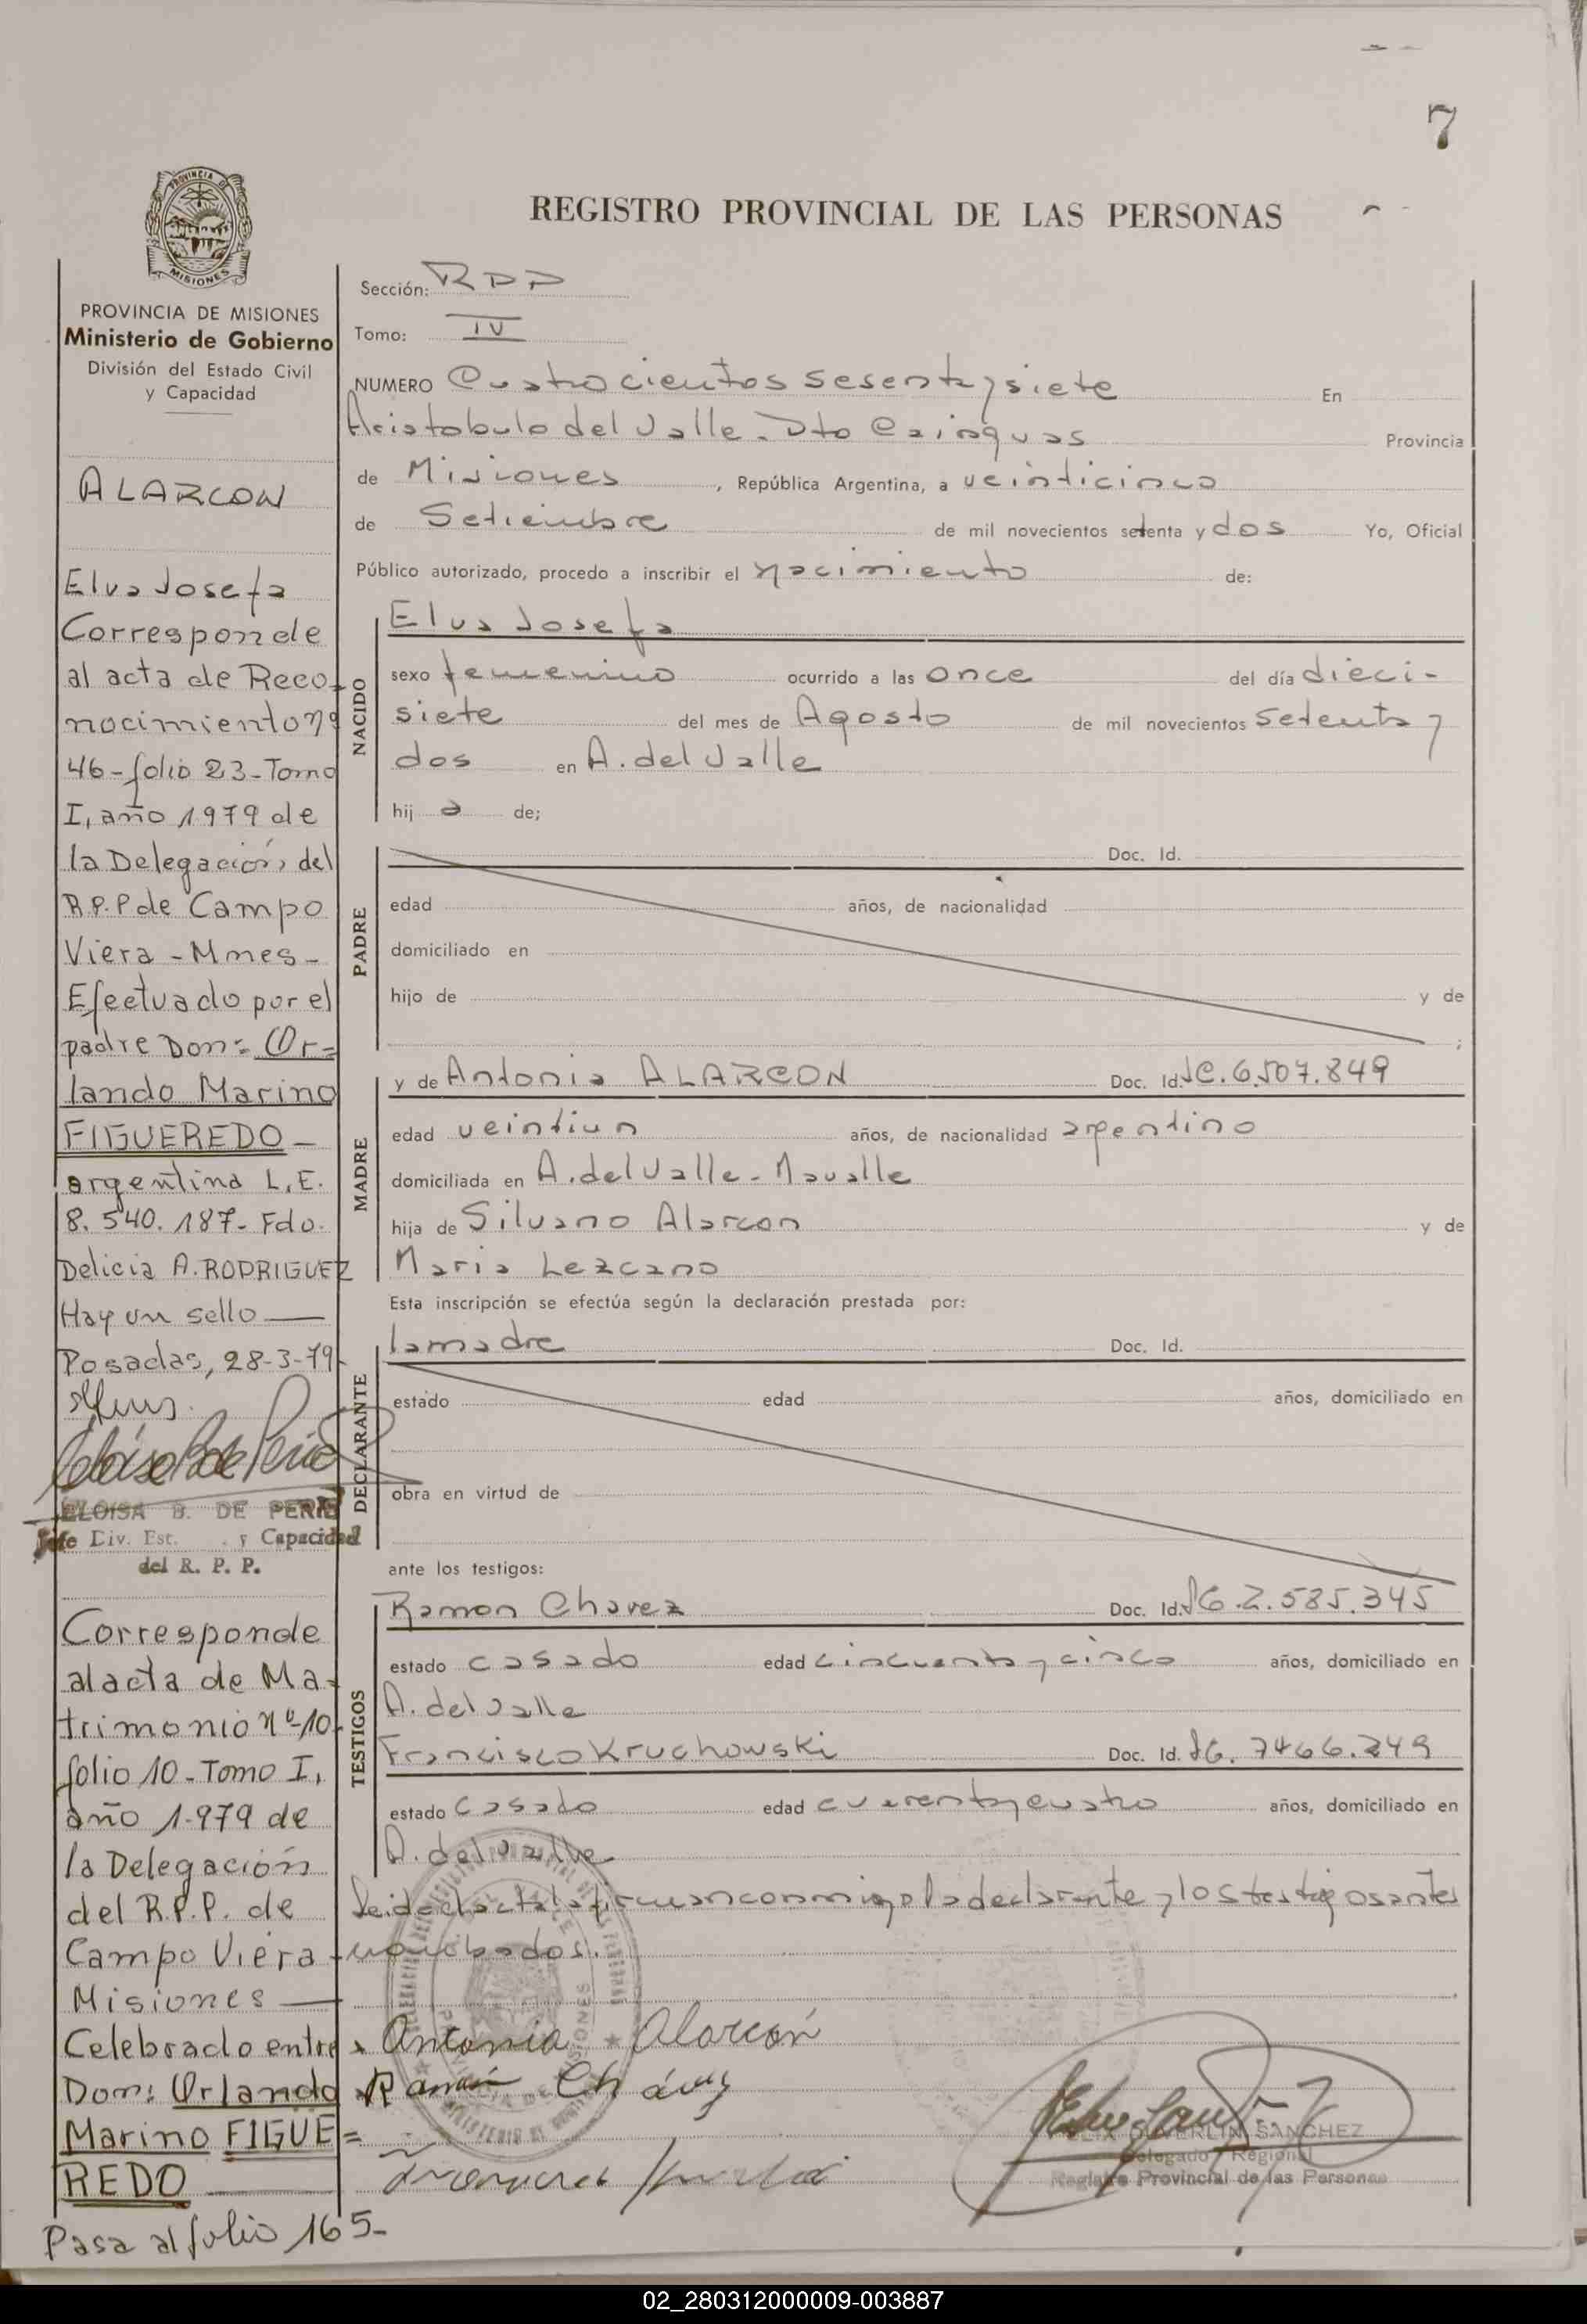 7
REGISTRO PROVINCIAL DE LAS PERSONAS
PROVINCIA DE MISIONES
Ministerio de Gobierno
División del Estado Civil
y Capacidad
ALARCON
Elva Josefa
Corresponde
al acta de Reco-
nocimiento nº
46-folio 23-Tomo
I, año 1979 de
la Delegación, del
R.P.P de Campo
Viera - Mnes-
Efectuado por el
padre Don: Or=
lando Marino
FIGUEREDO-
argentina L.E.
8.540.187- Fdo.
Delicia A. RODRIGUEZ
Hay un sello
Posadas, 28-3-79-
ELOISA B. DE PERIE
Jefe Div. Est. y Capacidad
del R. P. P.
Corresponde
al acta de Ma-
trimonio nº-10-
folio 10-Tomo I,
año 1.979 de
la Delegación
del R.P.P. de
Campo Viera-
Misiones
Celebrado entre
Don: Orlando
Marino FIGUE=
REDO
Pasa al folio 165-
Sección: RPP
Tomo: IV
NUMERO Cuatrocientos sesenta y siete En
Aristobulo del Valle. Dto Cainguas Provincia
de Misiones, República Argentina, a veinticinco
de Setiembre de mil novecientos setenta y dos Yo, Oficial
Público autorizado, procedo a inscribir el nacimiento de:
NACIDO
Elva Josefa
sexo femenino ocurrido a las once del día dieci-
siete del mes de Agosto de mil novecientos setenta y
dos en A. del Valle
hij a de;
PADRE
Doc. Id.
edad años, de nacionalidad
domiciliado en
hijo de y de
;
MADRE
y de Antonia ALARCON Doc. Id. 6.507.849
edad veintiun años, de nacionalidad argentino
domiciliada en A. del Valle-
hija de Silvano Alarcon y de
Maria Lezcano
Esta inscripción se efectúa según la declaración prestada por:
DECLARANTE
la madre Doc. Id.
estado edad años, domiciliado en
obra en virtud de
ante los testigos:
TESTIGOS
Ramon Chavez Doc. Id. 2.585.345
estado casado edad cincuenta y cinco años, domiciliado en
A. del Valle
Francisco Kruchowski Doc. Id. 7466.249
estado casado edad cuarenta y cuatro años, domiciliado en
A. del Valle
Leida el acta la firman conmigo la declarante y los testigos antes
nombrados.
Antonia Alarcón
Ramón Chávez
SANCHEZ
Delegado Regional
Registro Provincial de las Personas
02_280312000009-003887